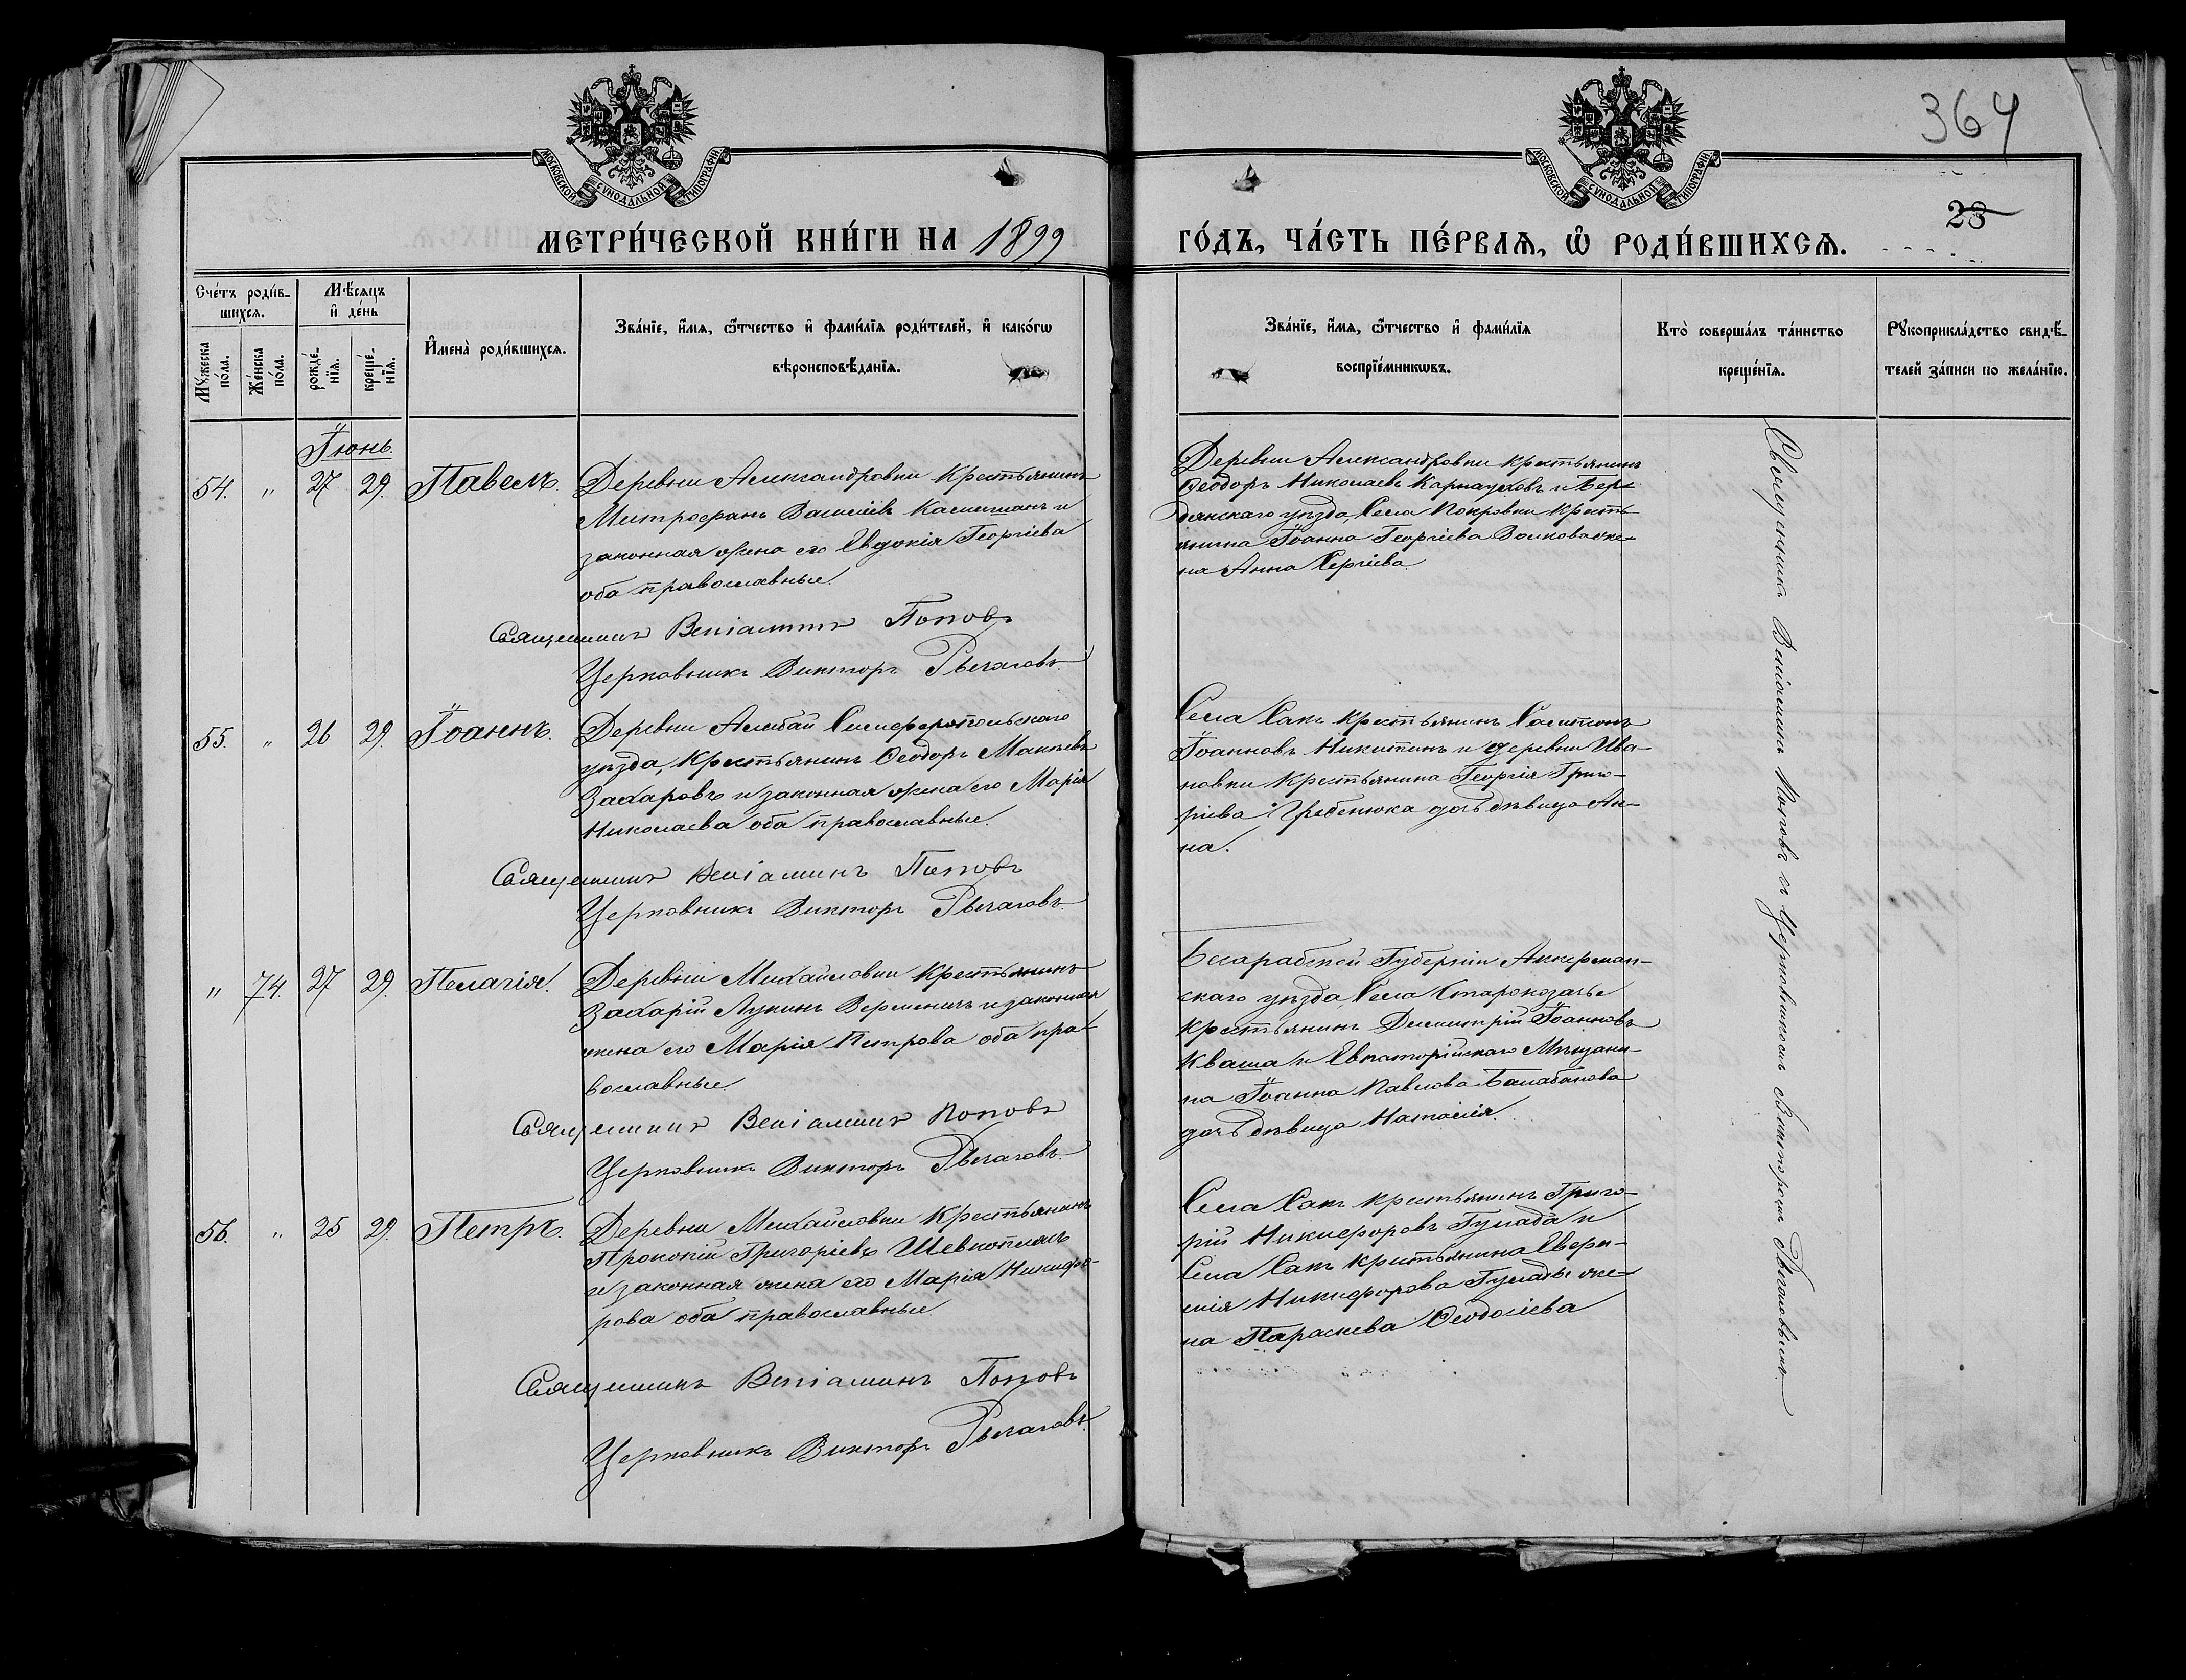 364
МОСКОВСКОЙ СѴНОДАЛЬНОЙ ТИПОГРАФІИ
МОСКОВСКОЙ СѴНОДАЛЬНОЙ ТИПОГРАФІИ
28
МЕТРИ́ЧЕСКОЙ КНИ́ГИ НА 1899
ГО́ДЪ, ЧА́СТЬ ПЕ́РВАѦ, Ѡ҆ РОДИ́ВШИХСѦ.
Сче́тъ роди́в-
шихсѧ.
Мѣ́сѧцъ
и҆ де́нь
Мꙋ́жеска
по́ла.
Же́нска
по́ла.
рожде́-
нїѧ.
креще́-
нїѧ.
И҆мена̀ роди́вшихсѧ.
Зва́нїе, и҆́мѧ, ѻ҆́тчество и҆ фами́лїѧ роди́телей, и҆ како́гѡ
вѣроисповѣ́данїѧ.
Зва́нїе, и҆́мѧ, ѻ҆́тчество и҆ фами́лїѧ
воспрїе́мникѡвъ.
Кто̀ соверша́лъ та́инство
креще́нїѧ.
Рꙋкоприкла́дство свидѣ́-
телей за́писи по жела́нїю.
Іюнь.
54. " 27 29. Павелъ.
Деревни Александровки Крестьянинъ
Митрофанъ Василіевъ Камышанъ и
законная жена его Евдокія Георгіева
оба православные.
Священникъ Веніаминъ Поповъ
Церковникъ Викторъ Рычаговъ.
Деревни Александровки крестьянинъ
Феодоръ Николаевъ Карнауховъ и Бер-
дянскаго уѣзда, Села Покровки Кресть-
янина Іоанна Георгіева Волкова же-
на Анна Сергіева
55. " 26 29. Іоаннъ.
Деревни Симферопольскаго
уѣзда, Крестьянинъ Феодоръ
Захаровъ и законная жена его Марія
Николаева оба православные.
Священникъ Веніаминъ Поповъ
Церковникъ Викторъ Рычаговъ.
Села Сакъ Крестьянинъ
Іоанновъ Никитинъ и деревни Ива-
новки Крестьянина Георгія Григо-
ріева Гребенюка дочь дѣвица Ан-
на.
" 74. 27 29. Пелагія.
Деревни Михайловки Крестьянинъ
Захарій Лукинъ Веременичъ и законная
жена его Марія Петрова оба пра-
вославные
Священникъ Веніаминъ Поповъ
Церковникъ Викторъ Рычаговъ.
Бесарабской Губерніи Аккерман-
скаго уѣзда, Села Староказачье
крестьянинъ Димитрій Іоанновъ
Кваша и Евпаторійскаго Мѣщани-
на Іоанна Павлова Балабанова
дочь дѣвица Наталія.
56. " 25 29. Петръ.
Деревни Михайловки Крестьянинъ
Прокопій Григоріевъ Шевкоплясъ
и законная жена его Марія Никифо-
рова оба православные.
Священникъ Веніаминъ Поповъ
Церковникъ Викторъ Рычаговъ.
Села Сакъ крестьянинъ Григо-
рій Никифоровъ Гулада и
Села Сакъ крестьянина Евфи-
мія Никифорова Гулады же-
на Параскева Феодосіева
Священникъ Веніаминъ Поповъ съ Церковникомъ Викторомъ Рычаговымъ.